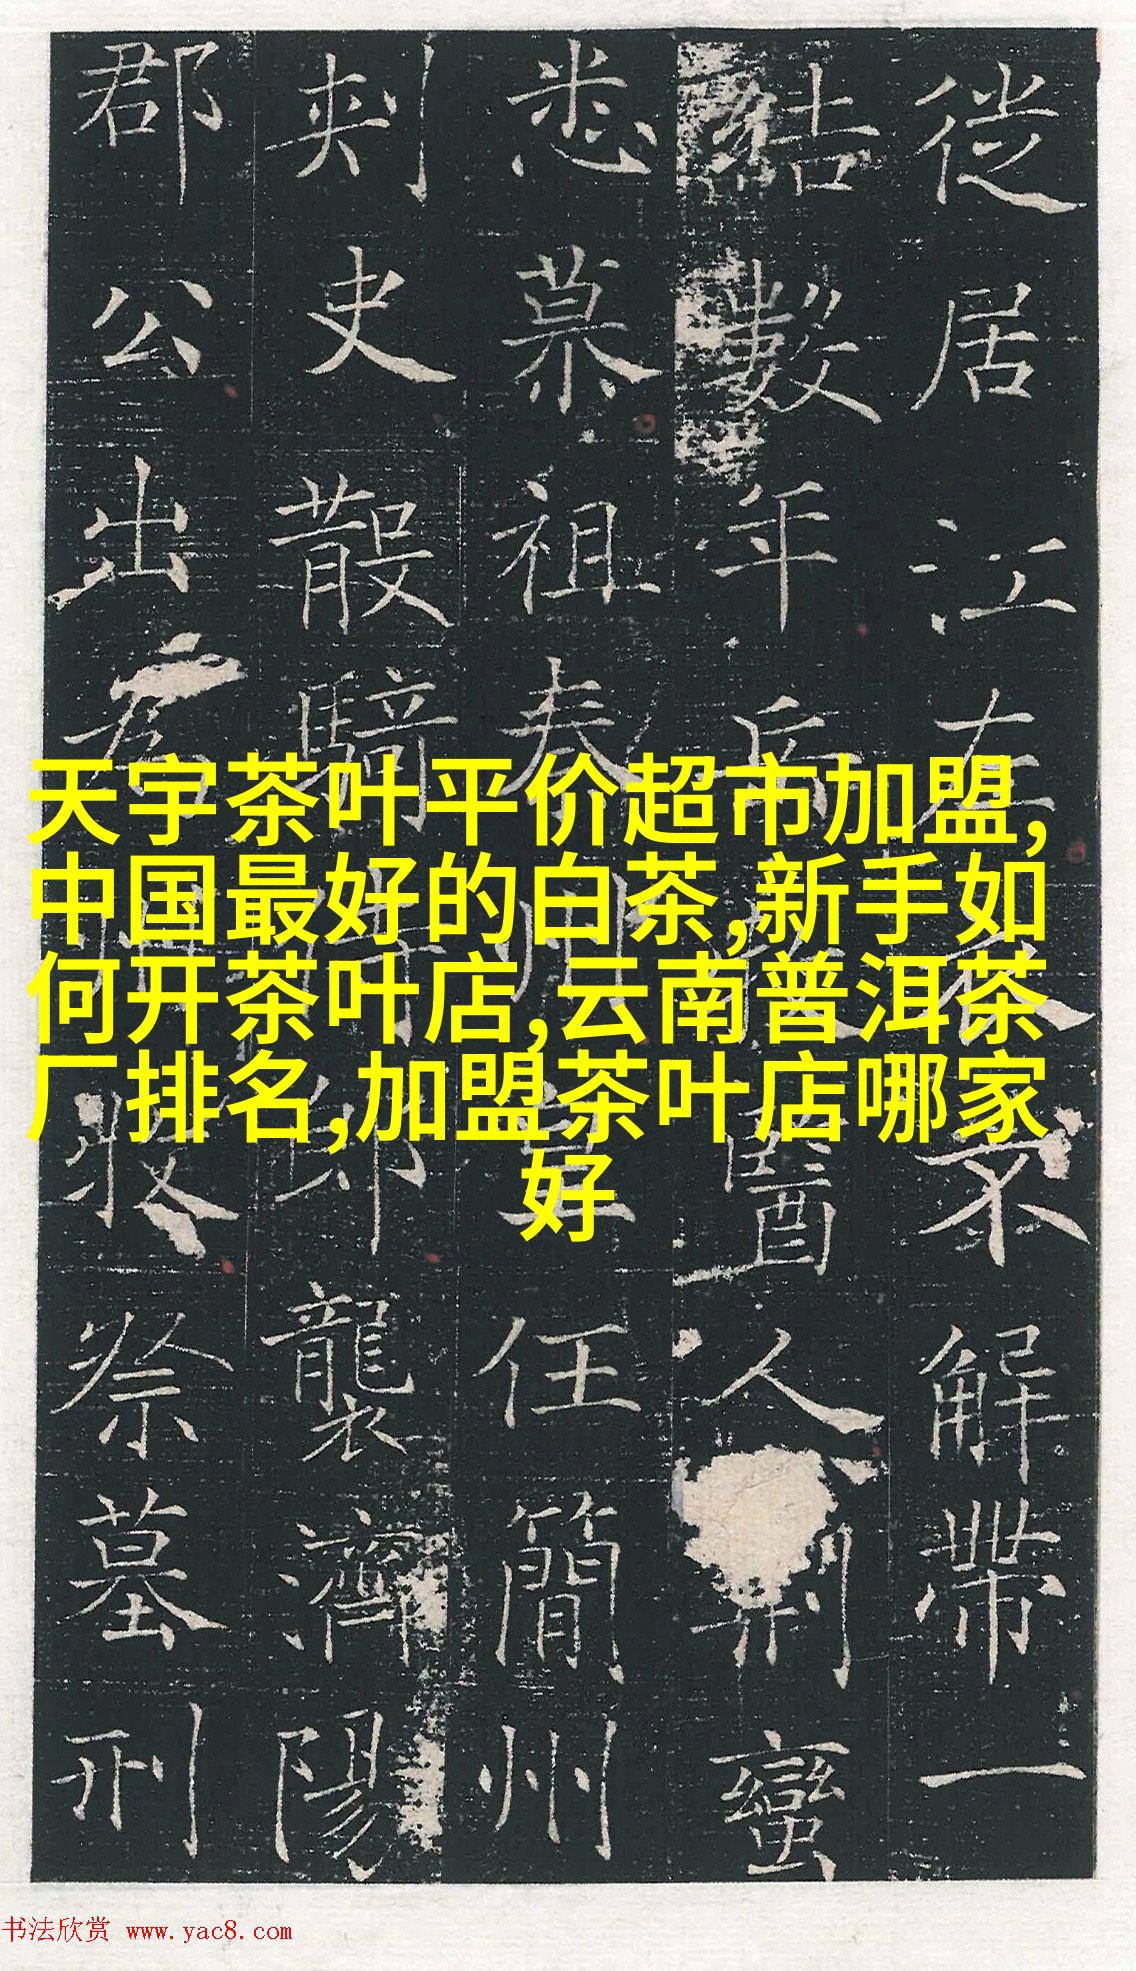 天宇茶叶平价超市加盟,
中国最好的白茶,新手如
何开茶叶店,云南普洱茶
厂排名,加盟茶叶店哪家
好
徙居江左衣不解帶一
數年醫人制蠻
悉慕祖任簡州
刺史散騎侍郎襲濟陽
郡公出為祭墓刑
书法欣赏 www.yac8.com